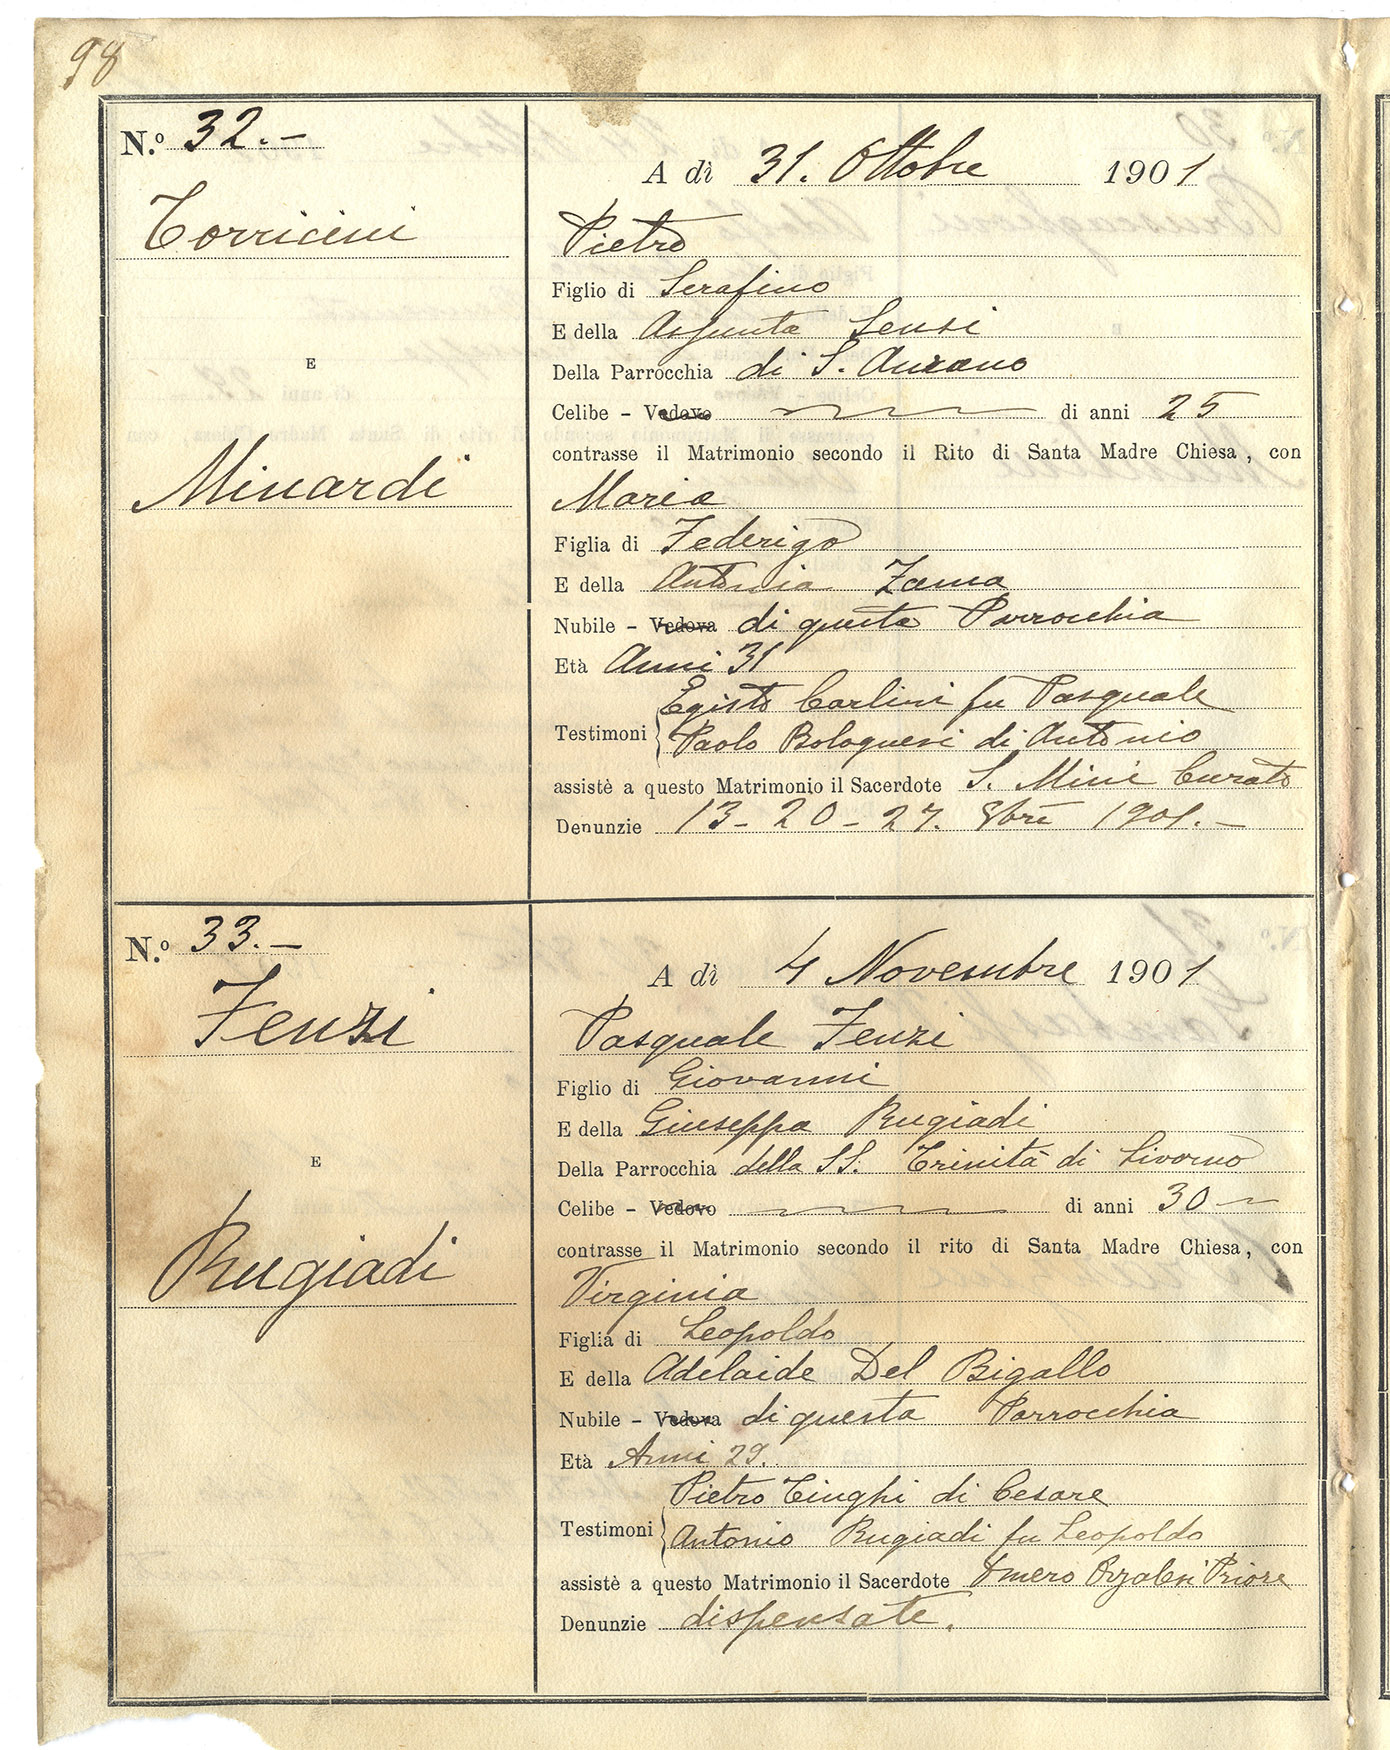 98
N.º 32.-
Torricini
E
Minardi
A dì 31. Ottobre 1901
Pietro
Figlio di Serafino
E della Assunta Sensi
Della Parrocchia di S. Ansano
Celibe - Vedovo di anni 25
contrasse il Matrimonio secondo il Rito di Santa Madre Chiesa, con
Maria
Figlia di Federigo
E della Antonia Zama
Nubile - Vedova di questa Parrocchia
Età Anni 31
Egisto Carlini fu Pasquale
Testimoni
Paolo Bolognesi di Antonio
assistè a questo Matrimonio il Sacerdote S. Mini Curato
Denunzie 13 - 20 - 27. 8bre 1901.-
N.º 33.-
Fenzi
E
Rugiadi
A dì 4 Novembre 1901
Pasquale Fenzi
Figlio di Giovanni
E della Giuseppa Rugiadi
Della Parrocchia della SS. Trinità di Livorno
Celibe - Vedovo di anni 30
contrasse il Matrimonio secondo il rito di Santa Madre Chiesa, con
Virginia
Figlia di Leopoldo
E della Adelaide Del Bigallo
Nubile - Vedova di questa Parrocchia
Età Anni 29.
Pietro Tinghi di Cesare
Testimoni
Antonio Rugiadi fu Leopoldo
assistè a questo Matrimonio il Sacerdote Priore
Denunzie dispensate.